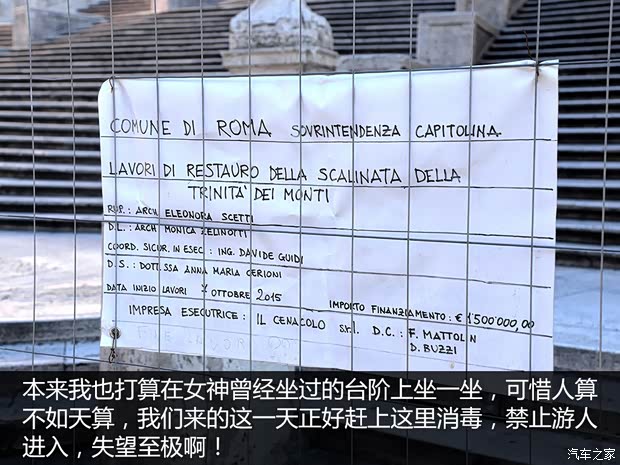 COMUNE DI ROMA SOVRINTENDENZA CAPITOLINA
LAVORI DI RESTAURO DELLA SCALINATA DELLA
TRINITA' DEI MONTI
R.U.P.: ARCH ELEONORA SCETTI
D.L.: ARCH MONICA ZELINOTTI
COORD. SICUR. IN ESEC: ING. DAVIDE GUIDI
D.S.: DOTT.SSA ANNA MARIA CERIONI
DATA INIZIO LAVORI 7 OTTOBRE 2015
IMPORTO FINANZIAMENTO: € 1'500'000,00
IMPRESA ESECUTRICE: IL CENACOLO S.r.l. D.C.: F. MATTOLIN
D. BUZZI
本来我也打算在女神曾经坐过的台阶上坐一坐，可惜人算
不如天算，我们来的这一天正好赶上这里消毒，禁止游人
进入，失望至极啊！
汽车之家